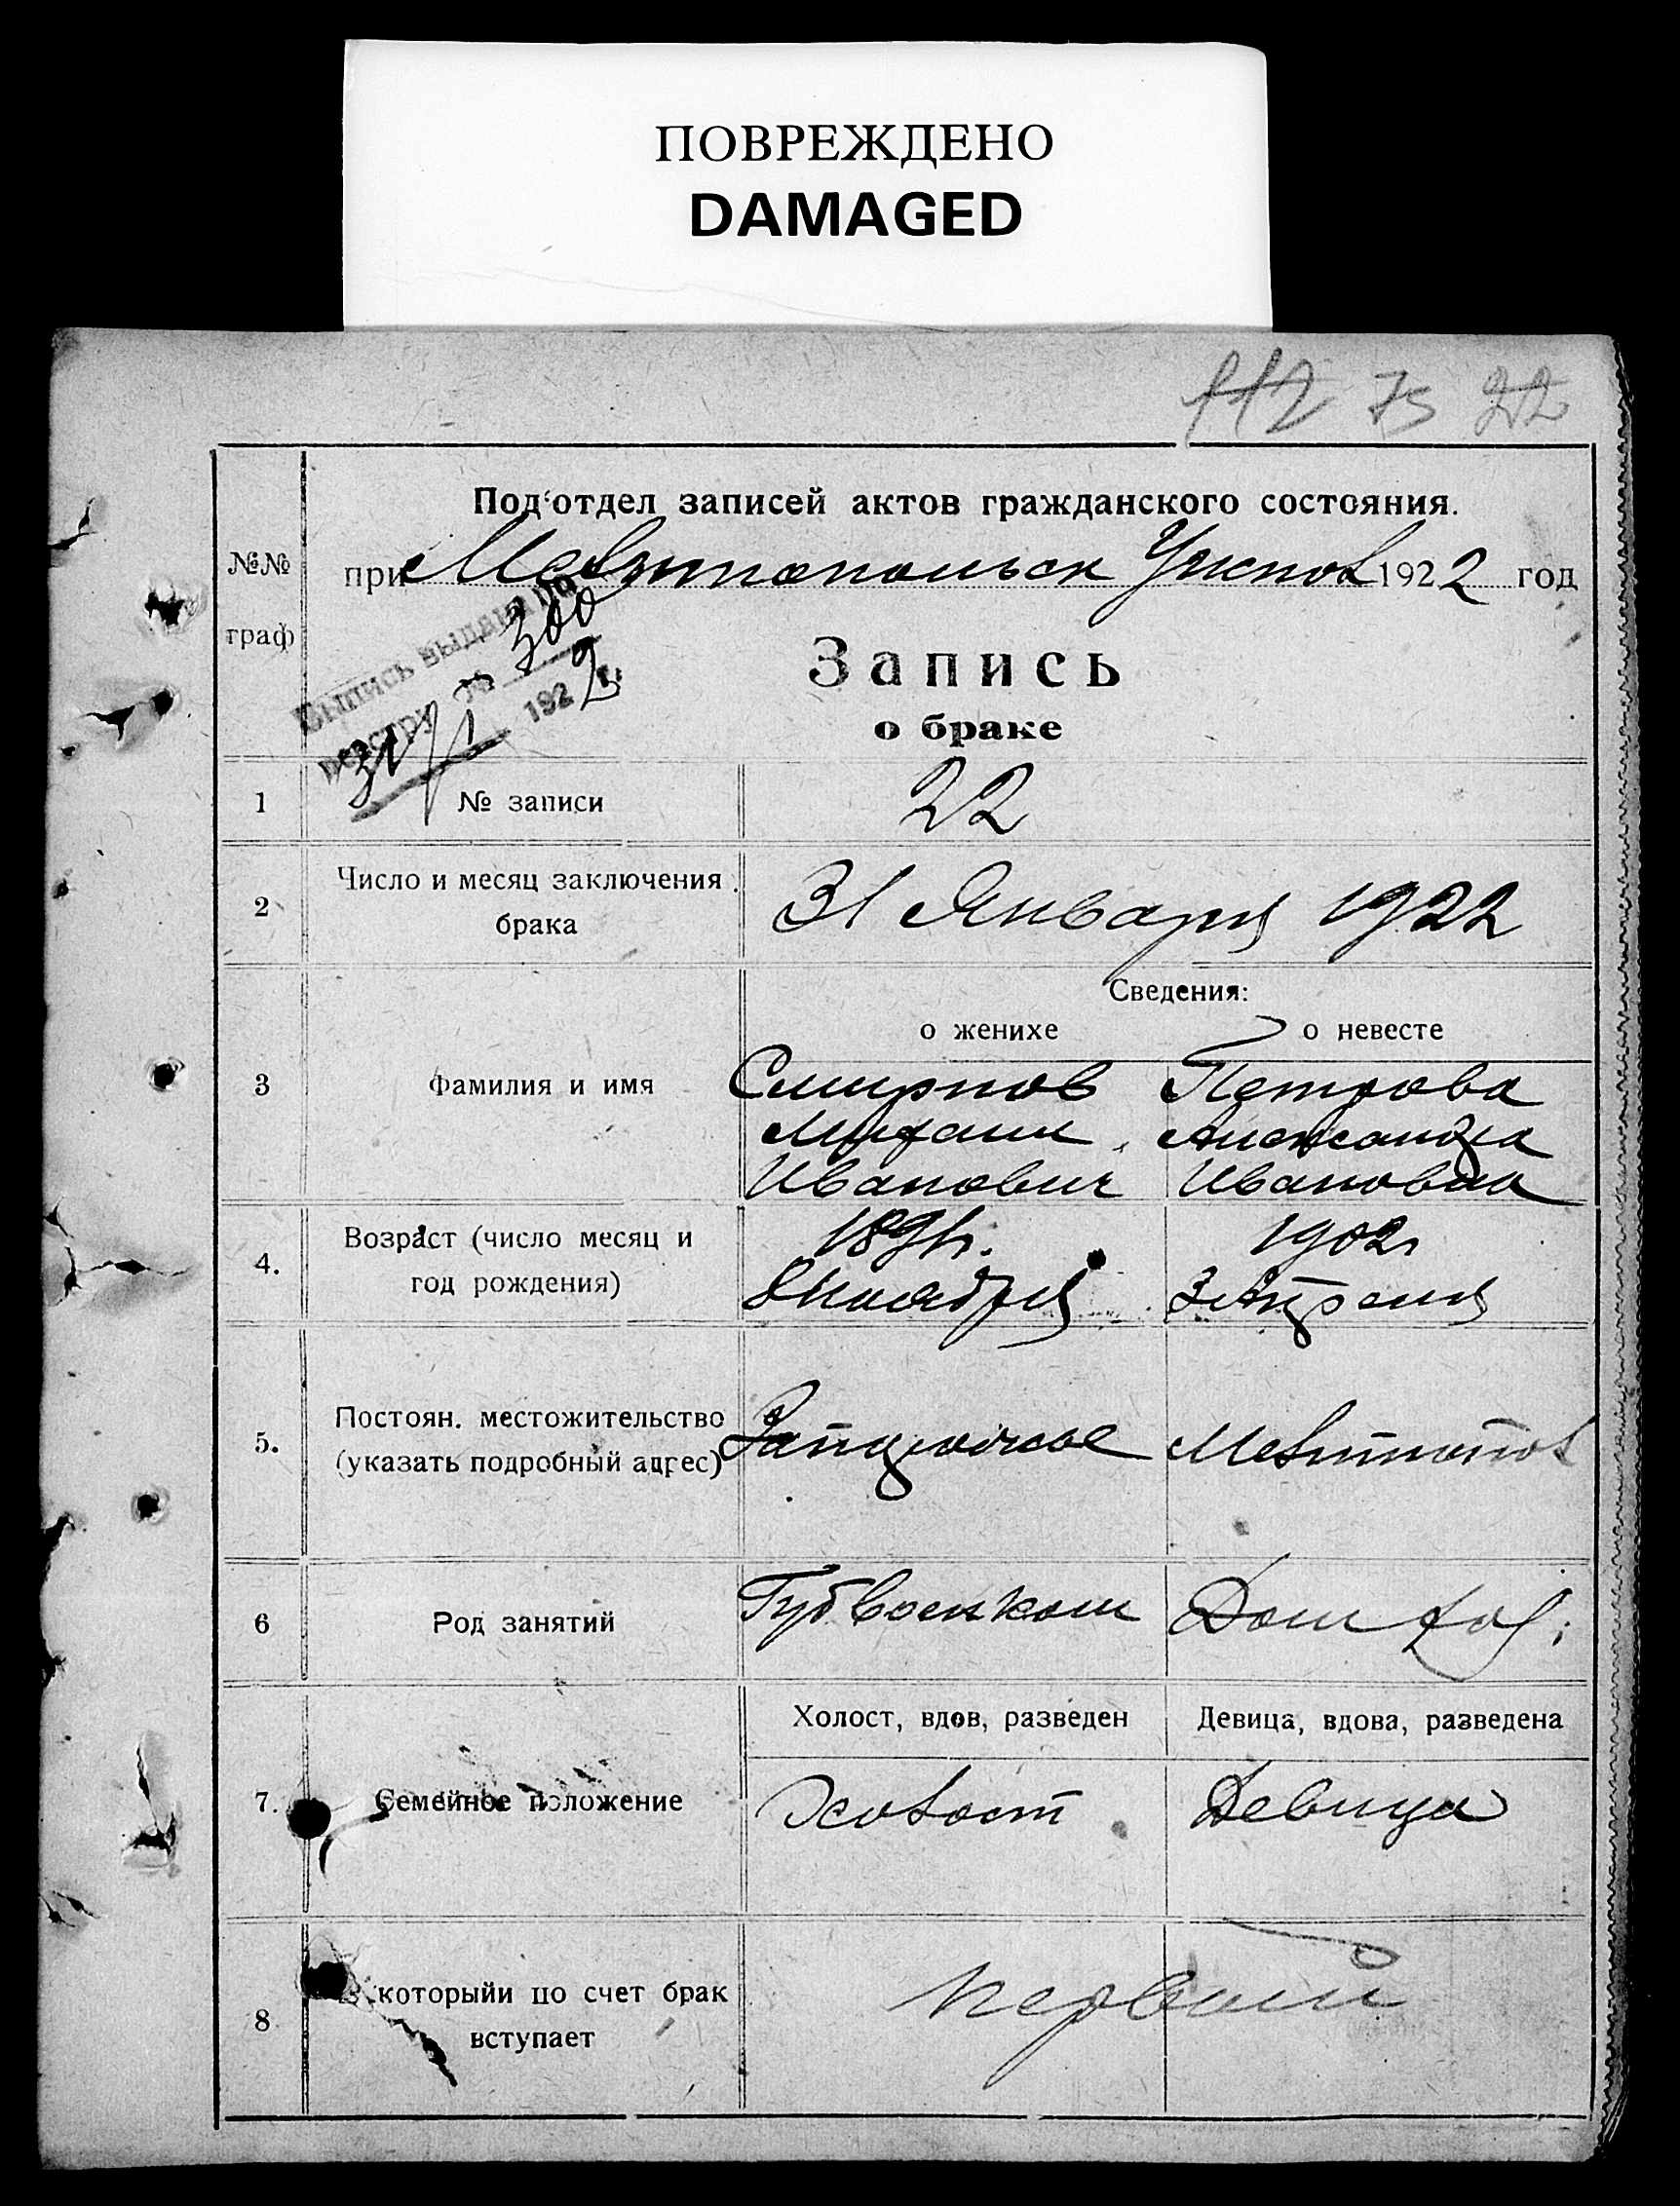 ПОВРЕЖДЕНО
DAMAGED
112 75 22
Подотдел записей актов гражданского состояния.
№№
граф
при Мелитопольск Уиспол 1922 год
Выпись выдана по
реестру № 300
31/I 1922 г.
Запись
о браке
1 № записи 22
2 Число и месяц заключения
брака
31 Января 1922
Сведения:
о женихе о невесте
3 Фамилия и имя
Смирнов Петрова
Михаил Александра
Иванович Ивановна
4. Возраст (число месяц и
год рождения)
189 1902
8 Ноября 3 Апреля
5. Постоян. местожительство
(указать подробный адрес)
Запорожье Мелитопол
6 Род занятий
Губвоенком Дом хоз:
Холост, вдов, разведен Девица, вдова, разведена
7. Семейное положение
Холост Девица
8 В которыйи по счет брак
вступает
первый